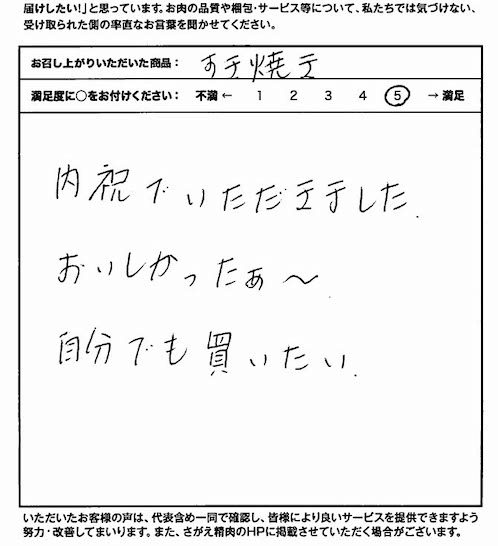 届けしたい!」と思っています。お肉の品質や梱包・サービス等について、私たちでは気づけない、
受け取られた側の率直なお言葉を聞かせてください。
お召し上がりいただいた商品： すき焼き
満足度に○をお付けください： 不満 ← 1 2 3 4 5 → 満足
内祝でいただきました.
おいしかったぁ〜
自分でも買いたい.
いただいたお客様の声は、代表含め一同で確認し、皆様により良いサービスを提供できますよう
努力・改善してまいります。また、さがえ精肉のHPに掲載させていただく場合がございます。